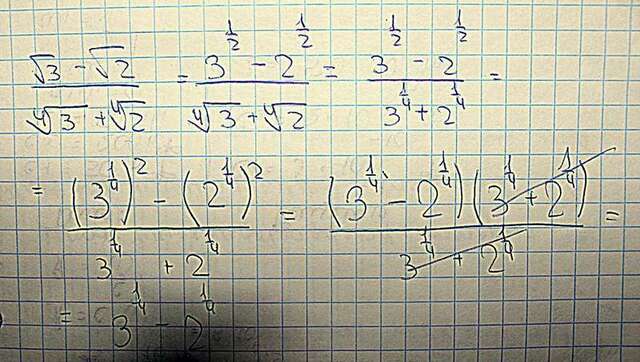 (√3 - √2)/(∜3 + ∜2) = (3^(1/2) - 2^(1/2))/(∜3 + ∜2) = (3^(1/2) - 2^(1/2))/(3^(1/4) + 2^(1/4)) =
= ((3^(1/4))^2 - (2^(1/4))^2)/(3^(1/4) + 2^(1/4)) = ((3^(1/4) - 2^(1/4))(3^(1/4) + 2^(1/4)))/(3^(1/4) + 2^(1/4)) =
= 3^(1/4) - 2^(1/4)